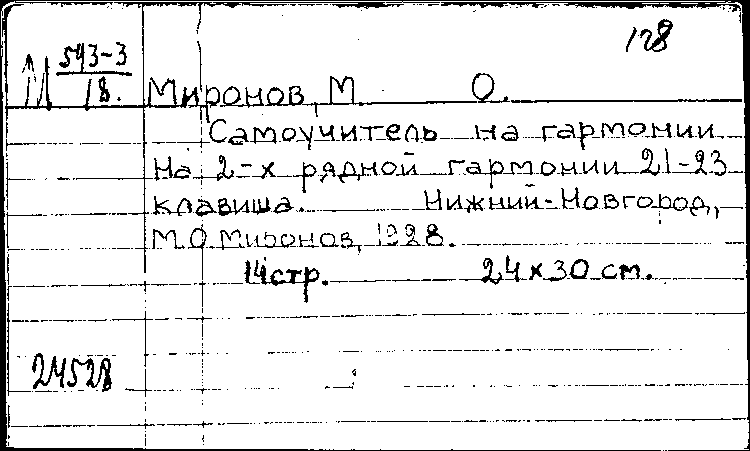 128
М 543-3
18.
Миронов, М. О.
Самоучитель на гармонии
на 2-х рядной гармонии 21-23
клавиша. Нижний-Новгород,
М.О. Миронов, 1928.
14 стр. 24 x 30 см.
24528